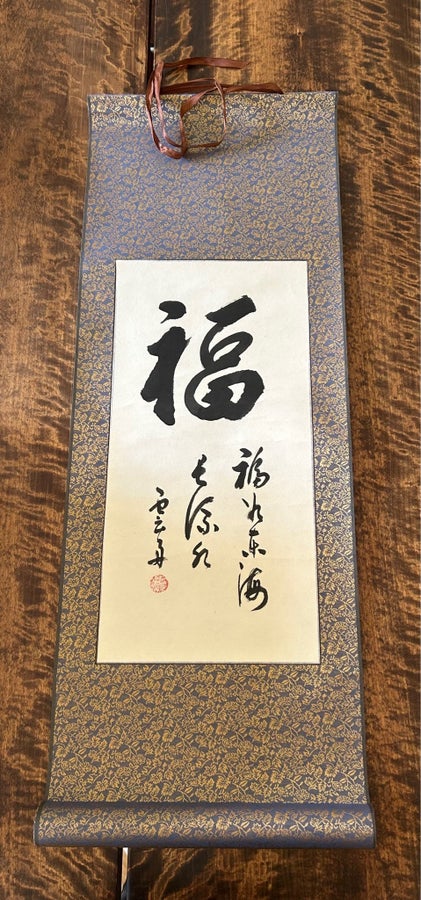 福
福如东海
长流水
雲舟